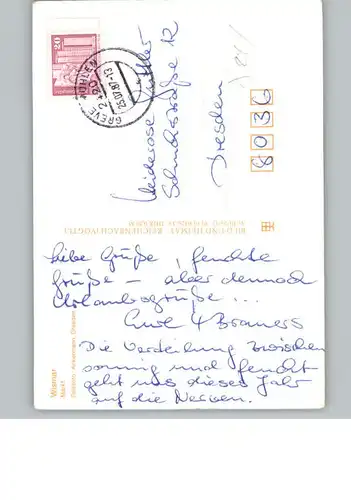 20
GREVESMÜHLEN
25.07.87-13
Heiderose
Dresden
8036
BILD UND HEIMAT REICHENBACH (VOGTL)
liebe Grüße, feuchte
Grüße – aber dennoch
Urlaubsgrüße ...
Eure 4 Bramers
Die Verteilung zwischen
sonnig und feucht
geht uns dieses Jahr
auf die Nerven.
Wismar
Markt